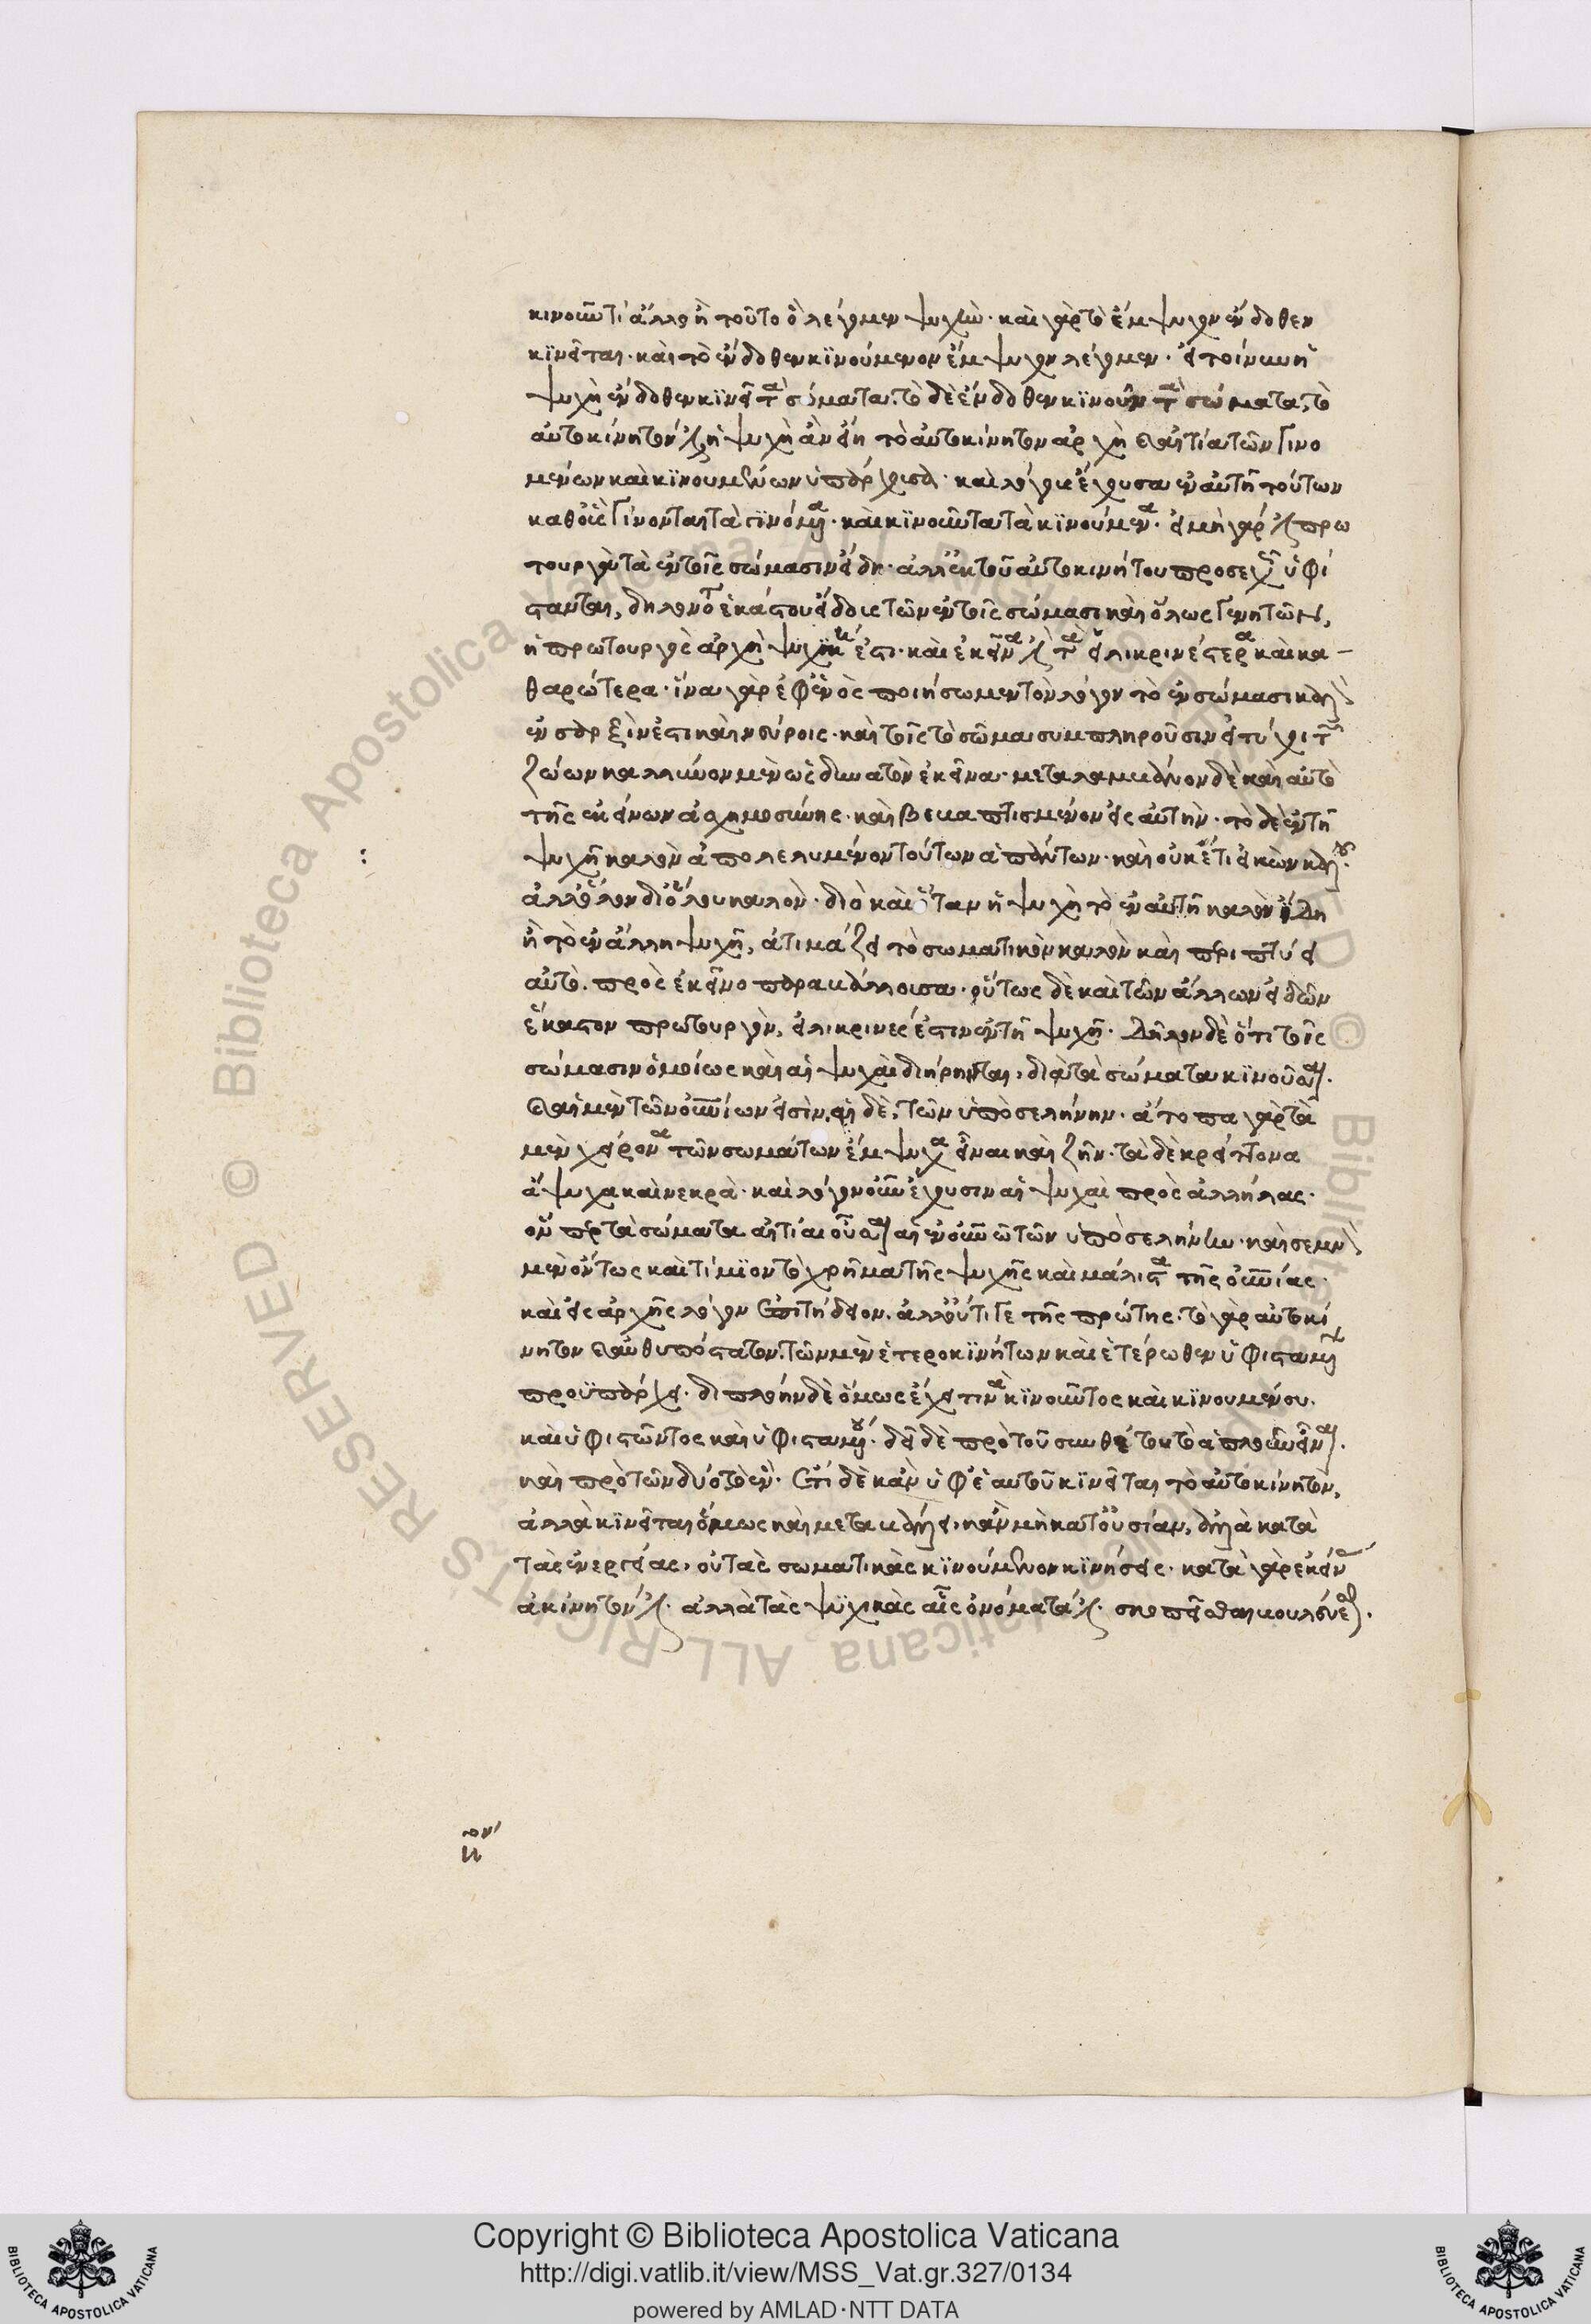 κινοῦντι ἄλλο ἢ τοῦτο ὃ λέγομεν ψυχὴν· καὶ γὰρ τὸ ἔμψυχον ἔνδοθεν
κινεῖται· καὶ τὸ ἔνδοθεν κινούμενον ἔμψυχον λέγομεν· εἰ τοίνυν ἡ
ψυχὴ ἔνδοθεν κινεῖ τὰ σώματα· τὸ δὲ ἔνδοθεν κινοῦν τὰ σώματα, τὸ
αὐτοκίνητόν ἐστιν, ἡ ψυχὴ ἂν εἴη τὸ αὐτοκίνητον ἀρχὴ καὶ αἰτία τῶν γινο
μένων καὶ κινουμένων ὑπάρχουσα· καὶ λόγους ἔχουσα ἐν αὐτῇ τούτων
καθ' οὓς γίνονται τὰ γινόμενα· καὶ κινοῦνται τὰ κινούμενα· εἰ μὴ γάρ ἐστι πρω
τουργὰ τὰ ἐν τοῖς σώμασιν εἴδη· ἀλλ' ἐκ τοῦ αὐτοκινήτου προσεχῶς ὑφί
στανται, δηλονότι ἑκάστου εἴδους τῶν ἐν τοῖς σώμασι καὶ ὅλως γενητῶν,
ἡ πρωτουργὸς ἀρχὴ ψυχική ἐστι· καὶ ἐκεῖνά ἐστι τὰ εἰλικρινέστερα καὶ κα-
θαρώτερα· ἵνα γὰρ ἐφ' ἑνὸς ποιήσωμεν τὸν λόγον τὸ ἐν σώμασι κάλλος
ἐν σαρξίν ἐστι καὶ νεύροις· καὶ τοῖς τὸ σῶμα συμπληροῦσιν εἰ τύχοι τῶν
ζώων καλλῦνον μὲν ὡς δυνατὸν ἐκεῖνα· μεταλαμβάνον δὲ καὶ αὐτὸ
τῆς ἐκείνων ἀσχημοσύνης· καὶ βεβαπτισμένον εἰς αὐτήν· τὸ δὲ ἐν τῇ
ψυχῇ καλὸν ἀπολελυμένον τούτων ἁπάντων· καὶ οὐκέτι εἰκὼν κάλλους·
ἀλλ' ὅλον δι' ὅλου καλόν· διὸ καὶ ὅταν ἡ ψυχὴ τὸ ἐν αὐτῇ καλὸν ἴδῃ
ἢ τὸ ἐν ἄλλῃ ψυχῇ, ἀτιμάζει τὸ σωματικὸν καλὸν καὶ περιπτύει
αὐτό, πρὸς ἐκεῖνο παραβάλλουσα· οὕτως δὲ καὶ τῶν ἄλλων εἰδῶν
ἕκαστον πρωτουργόν, εἰλικρινές ἐστιν ἐν τῇ ψυχῇ. Δῆλον δὲ ὅτι τοῖς
σώμασιν ὁμοίως καὶ αἱ ψυχαὶ διῄρηνται, διὰ τὰ σώματα κινοῦσαι·
καὶ αἱ μὲν τῶν οὐρανίων εἰσίν, αἱ δὲ, τῶν ὑπὸ σελήνην· ἄτοπα γὰρ τὰ
μὲν χείρονα τῶν σωμάτων ἔμψυχα εἶναι καὶ ζῆν· τὰ δὲ κρείττονα
ἄψυχα καὶ νεκρά· καὶ λόγον οὖν ἔχουσιν αἱ ψυχαὶ πρὸς ἀλλήλας·
ὅνπερ τὰ σώματα αἰτίαι οὖσαι αἱ ἐν οὐρανῷ τῶν ὑπὸ σελήνην· καὶ σεμνὸν
μὲν ὄντως καὶ τίμιον τὸ χρῆμα τῆς ψυχῆς καὶ μάλιστα τῆς οὐρανίας·
καὶ εἰς ἀρχῆς λόγον ἐπιτήδειον. ἀλλ' οὔτι γε τῆς πρώτης· τὸ γὰρ αὐτοκί
νητον καὶ αὐθυπόστατον, τῶν μὲν ἑτεροκινήτων καὶ ἑτέρωθεν ὑφισταμένων
προϋπάρχει· διπλόην δὲ ὅμως ἔχει τινὰ κινοῦντος καὶ κινουμένου.
καὶ ὑφιστῶντος καὶ ὑφισταμένου· δεῖ δὲ πρὸ τοῦ συνθέτου τὸ ἁπλοῦν εἶναι·
καὶ πρὸ τῶν δύο τὸ ἕν· ἔτι δὲ κἂν ὑφ' ἑαυτοῦ κινεῖται τὸ αὐτοκίνητον,
ἀλλὰ κινεῖται ὅμως καὶ μεταβάλλει, κἂν μὴ κατ' οὐσίαν, ἀλλὰ κατὰ
τὰς ἐνεργείας, οὐ τὰς σωματικὰς κινούμενον κινήσεις· κατὰ γὰρ ἐκείνας
ἀκίνητόν ἐστι· ἀλλὰ τὰς ψυχικὰς αἷς ὀνόματά ἐστι· σκοπεῖσθαι βουλεύεσθαι.